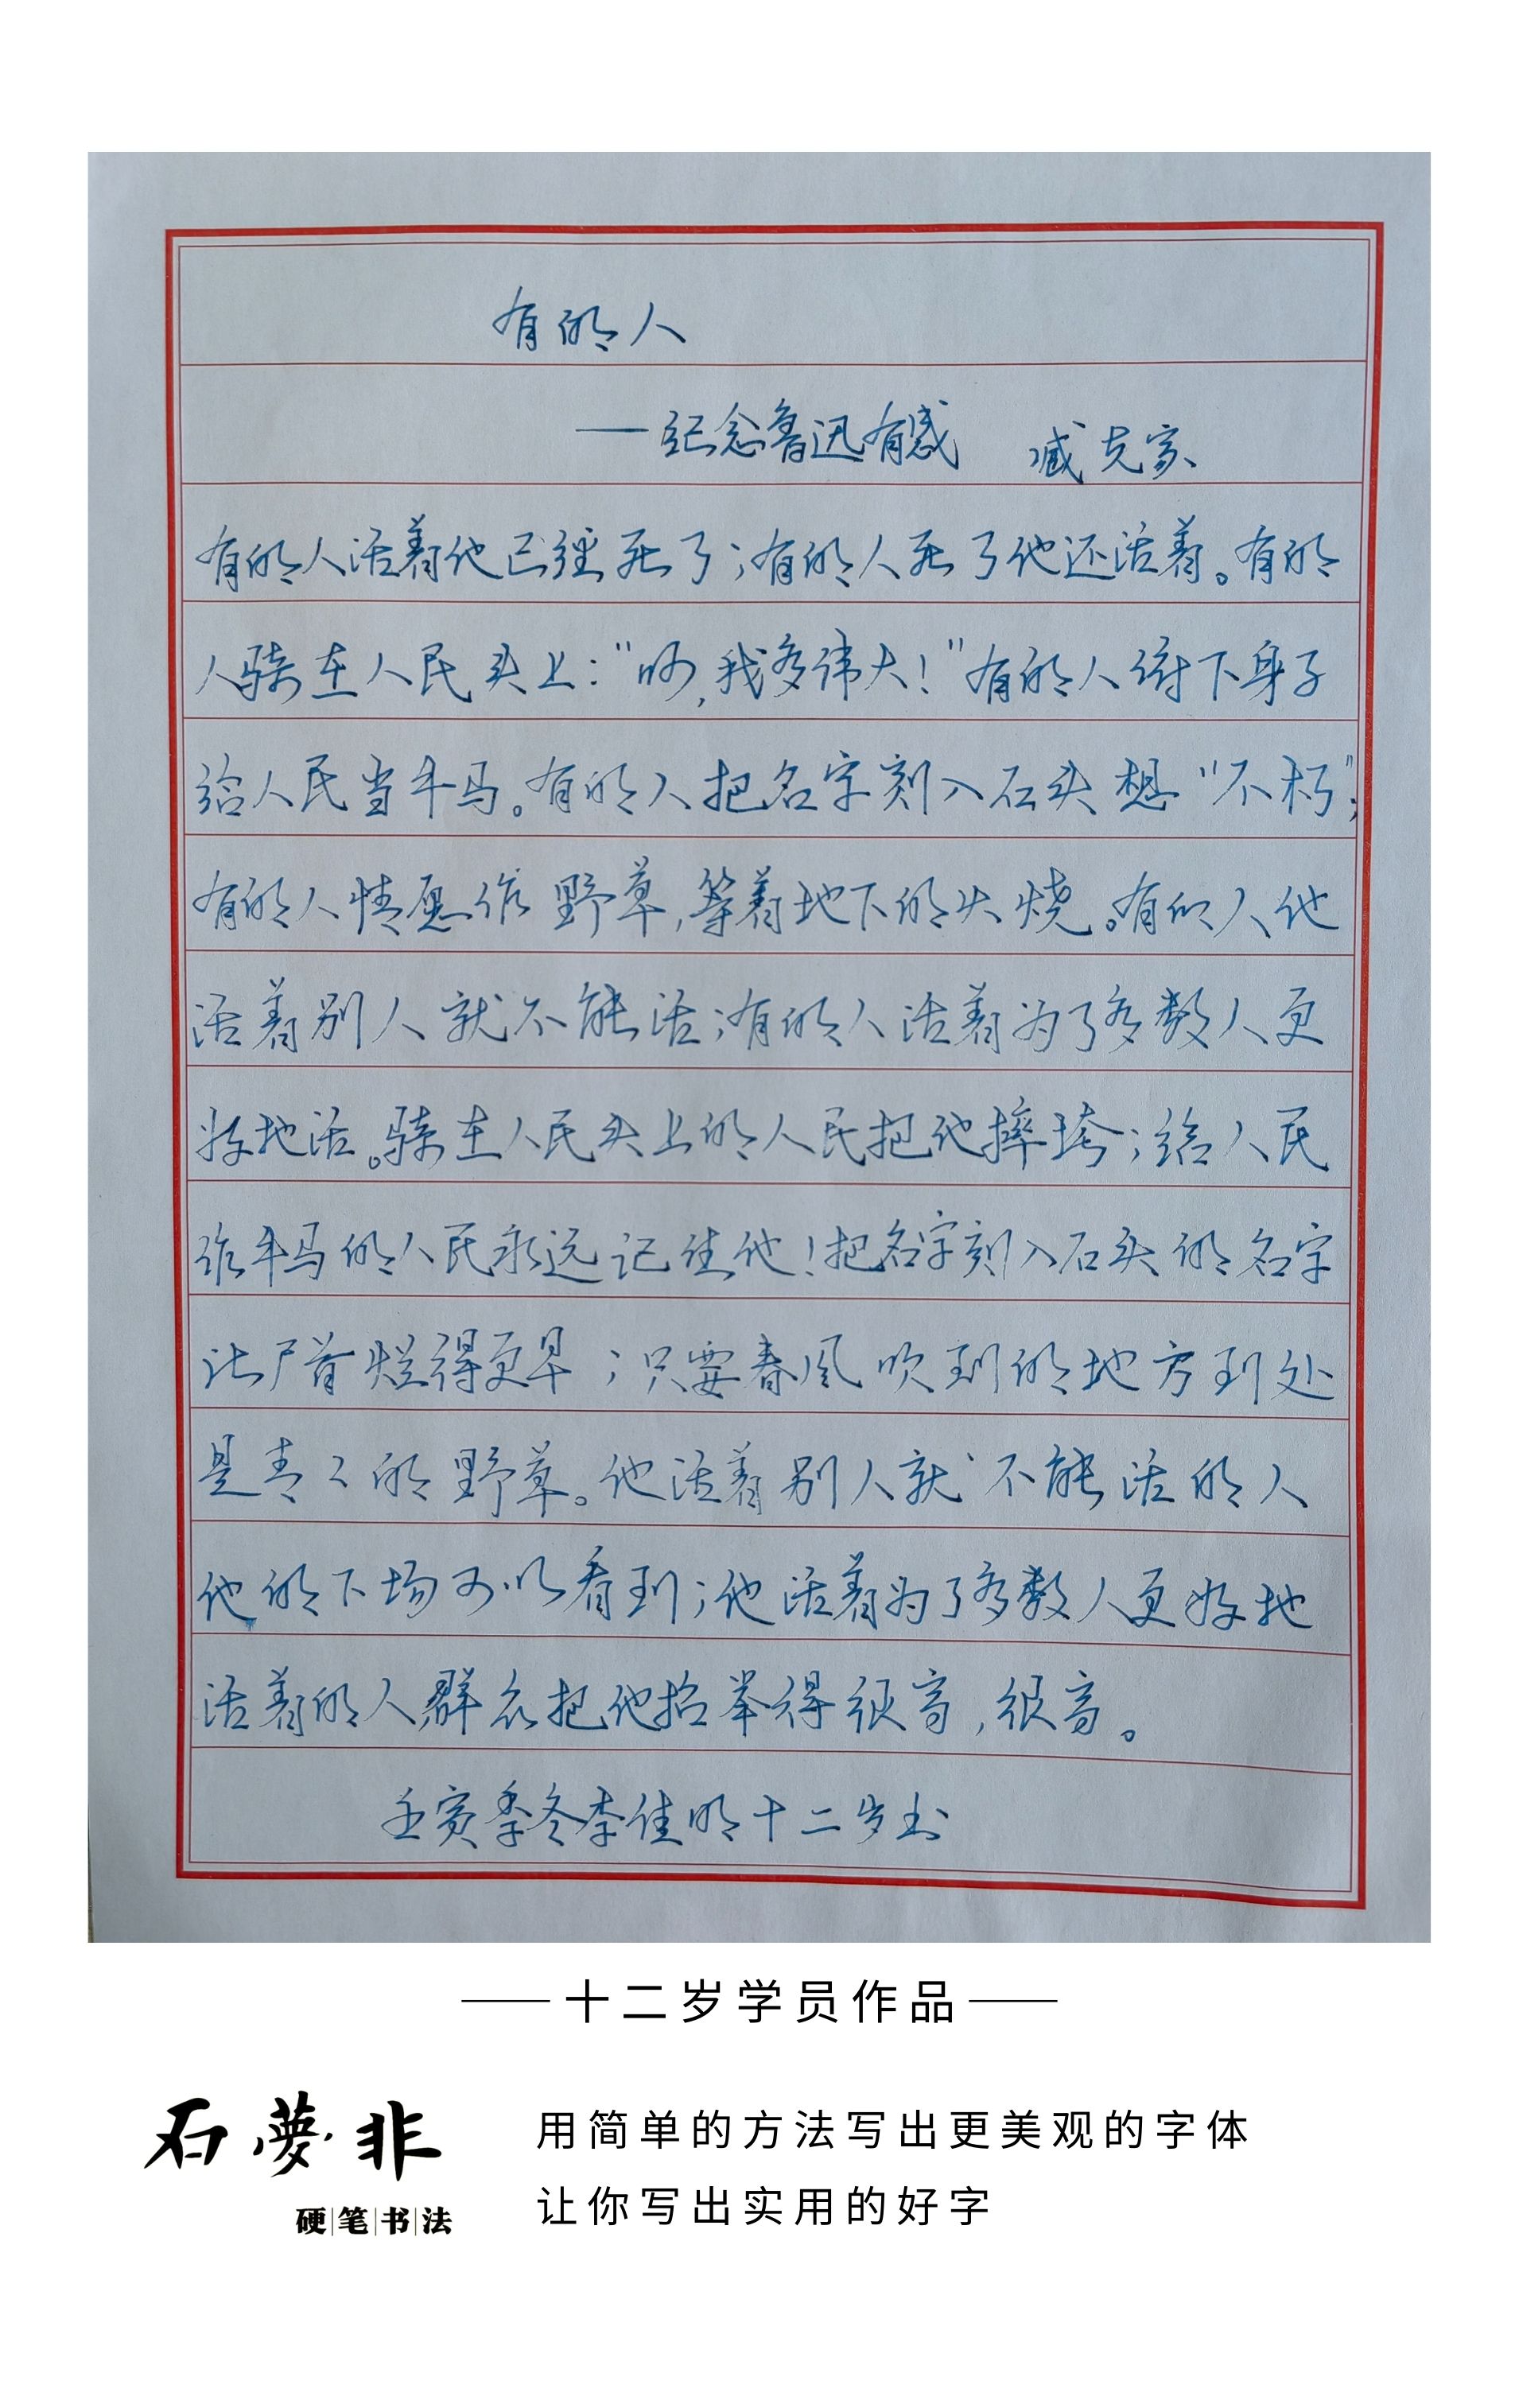 有的人
——纪念鲁迅有感 臧克家
有的人活着他已经死了；有的人死了他还活着。有的
人骑在人民头上：“呵，我多伟大！”有的人俯下身子
给人民当牛马。有的人把名字刻入石头想“不朽”；
有的人情愿作野草，等着地下的火烧。有的人他
活着别人就不能活；有的人活着为了多数人更
好地活。骑在人民头上的人民把他摔垮；给人民
作牛马的人民永远记住他！把名字刻入石头的名字
让尸首烂得更早；只要春风吹到的地方到处
是青々的野草。他活着别人就不能活的人
他的下场可以看到；他活着为了多数人更好地
活着的人群众把他抬举得很高，很高。
壬寅季冬李佳明十二岁书
——十二岁学员作品——
石夢非
硬|笔|书|法
用简单的方法写出更美观的字体
让你写出实用的好字